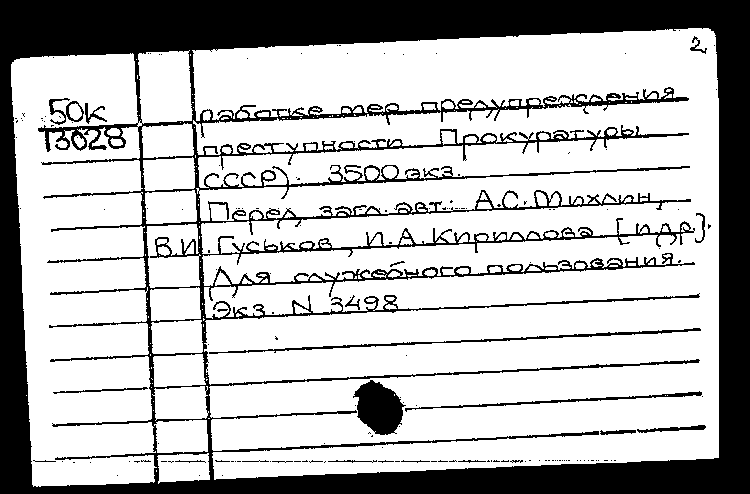 2
50К
13028
работке мер предупреждения
преступности Прокуратуры
СССР). 3500 экз.
Перед загл. авт.: А.С. Михлин,
В.И. Гуськов, И.А. Кириллова [и др].
Для служебного пользования.
Экз. N 3498